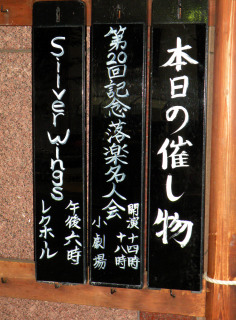 本日の催し物
第20回記念落楽名人会
開演 十四時
十八時
小劇場
Silver Wings
午後六時
レクホール